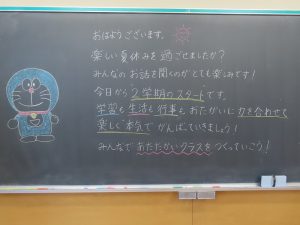 おはようございます。
楽しい夏休みを過ごせましたか？
みんなのお話を聞くのがとても楽しみです！
今日から2学期のスタートです。
学習も生活も行事も おたがいに力を合わせて
楽しく本気でがんばっていきましょう！
みんなであたたかいクラスをつくっていこう！